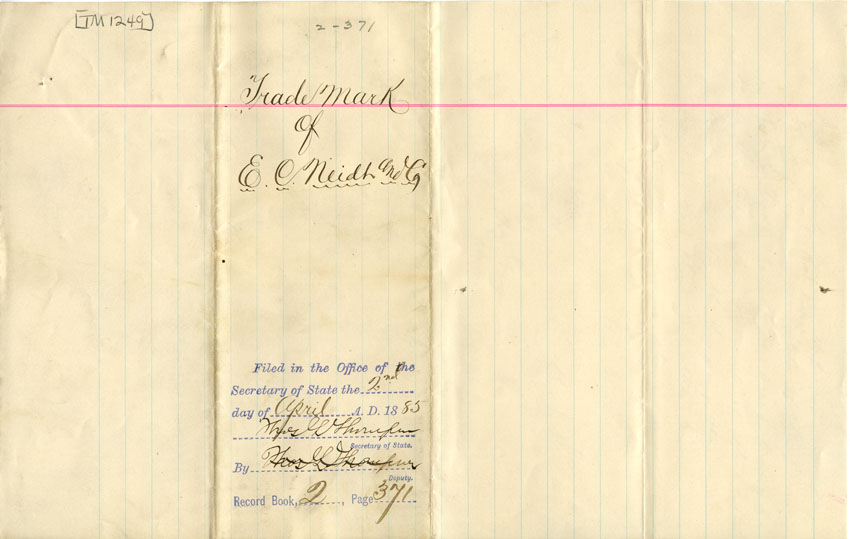 [TM 1249]
2-371
Trade Mark
of
E. C. Neidt and Co
Filed in the Office of the
Secretary of State the 2nd
day of April A. D. 1885
Thos L Thompson
Secretary of State.
By Thos L Thompson
Deputy.
Record Book, 2, Page 371